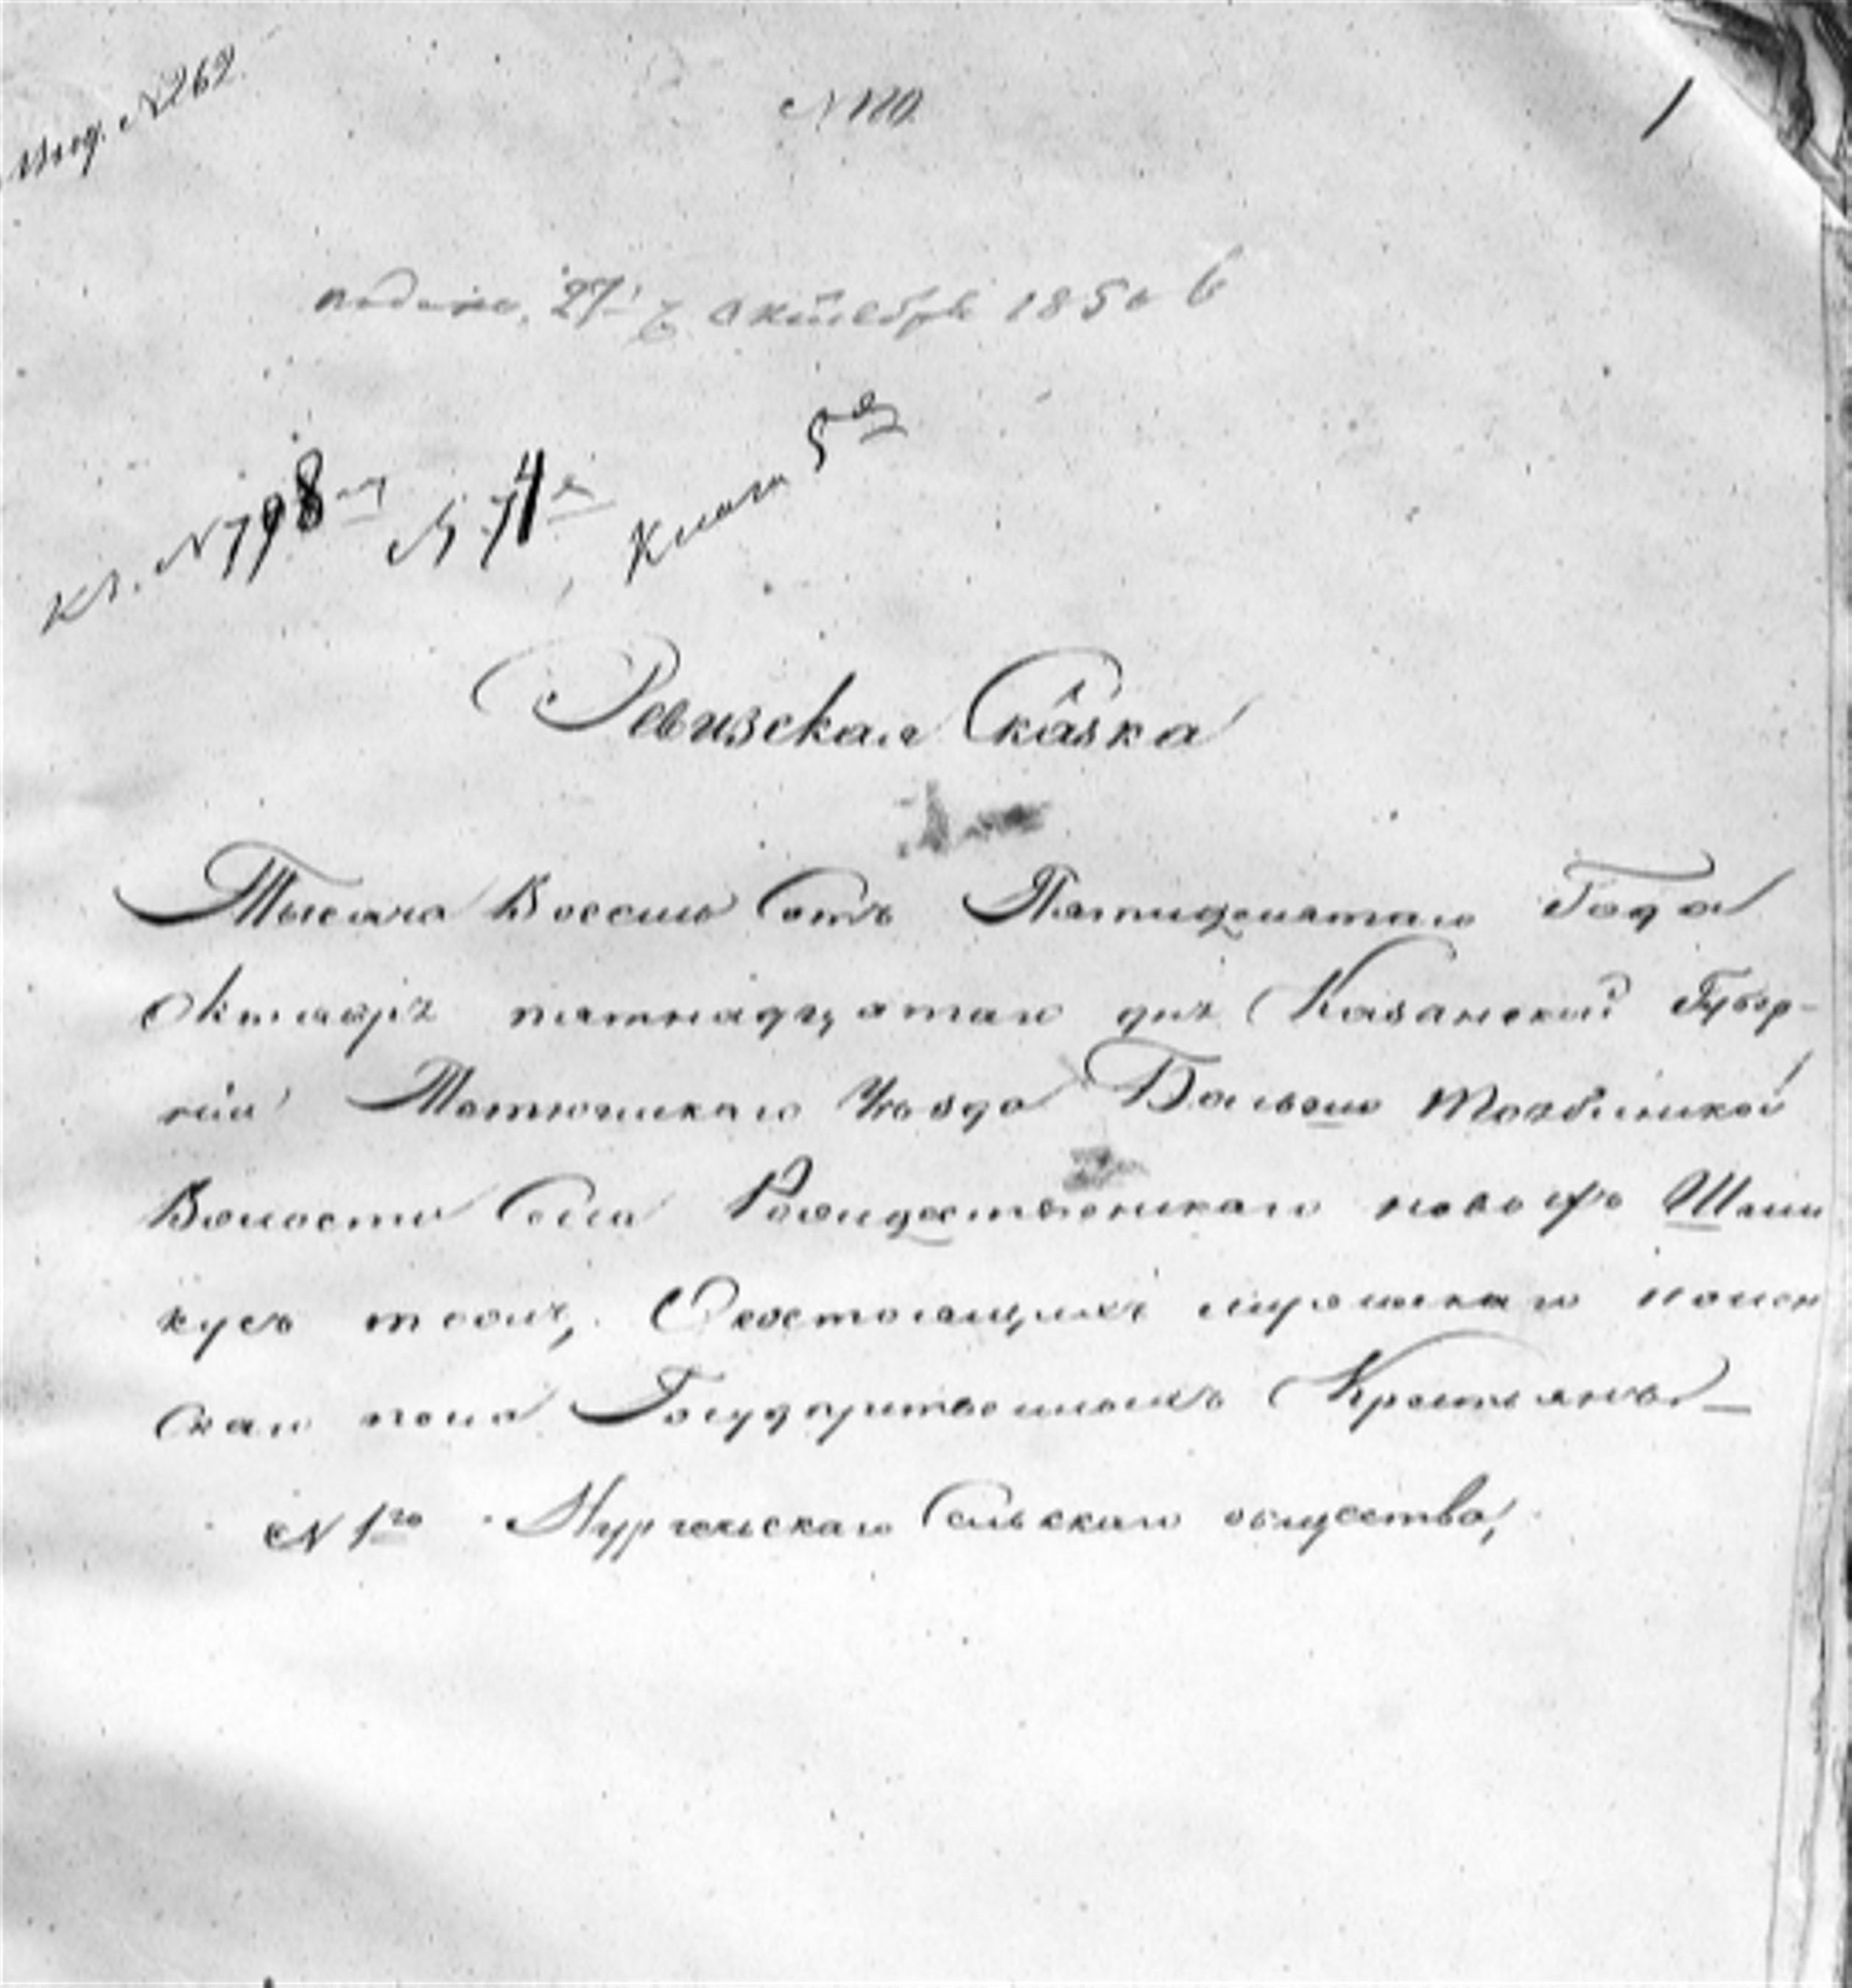 № 262
№ 110
1
подана, 27 октября 1850
№ 798 № 74 Книга 5
Ревизская Сказка
Тысяча Восемь Сотъ Пятидесятаго Года
Октября пятнадцатаго дня Казанской Губер-
нии Тетюшскаго Уезда Больше Тоябинской
Волости Села Рождественскаго ново Шим
кусъ тожъ, О состоящихъ мужескаго и женс
скаго пола Государственныхъ Крестьянъ
№ 1го Сельскаго общества,